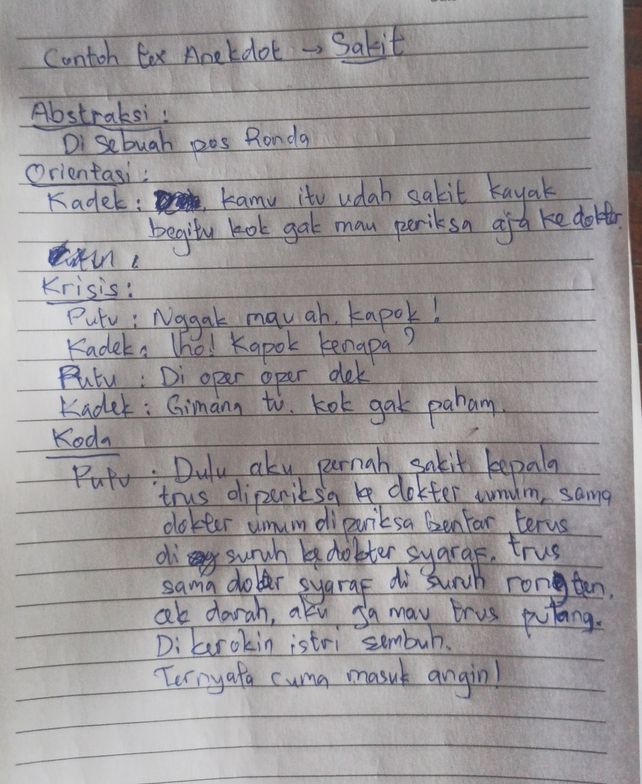 Contoh tex Anekdot → Sakit
Abstraksi :
Di sebuah pos Ronda
Orientasi :
Kadek : kamu itu udah sakit kayak
begitu kok gak mau periksa aja ke dokter.
Krisis :
Putu : Nggak mau ah. kapok !
Kadek : lho! Kapok kenapa ?
Putu : Di oper oper dek
Kadek : Gimana tu. kok gak paham.
Koda
Putu : Dulu aku pernah sakit kepala
trus diperiksa ke dokter umum, sama
dokter umum di periksa bentar terus
di suruh ke dokter syaraf. trus
sama dokter syaraf di suruh rongten,
cek darah, aku ga mau trus pulang.
Di kerokin istri sembuh.
Ternyata cuma masuk angin!